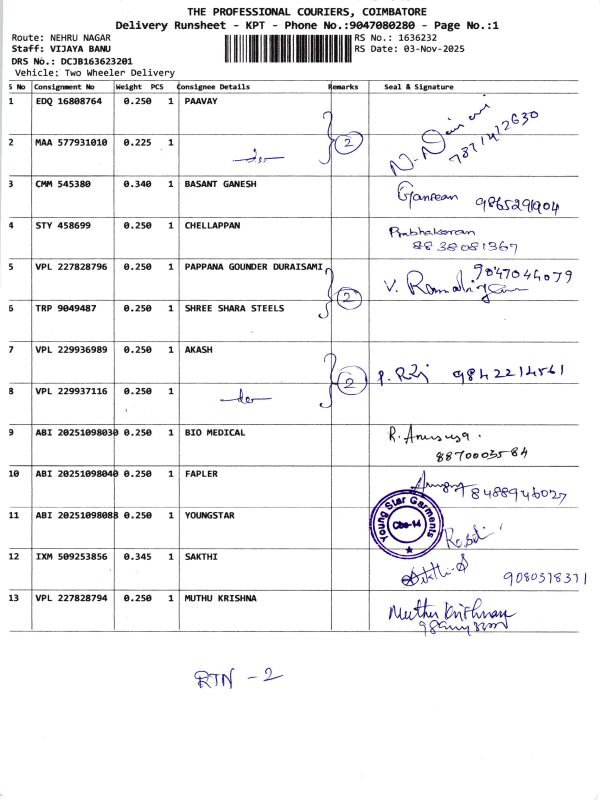 THE PROFESSIONAL COURIERS, COIMBATORE
Delivery Runsheet - KPT - Phone No.:9047080280 - Page No.:1
Route: NEHRU NAGAR RS No.: 1636232
Staff: VIJAYA BANU RS Date: 03-Nov-2025
DRS No.: DCJB163623201
Vehicle: Two Wheeler Delivery
S No Consignment No Weight PCS Consignee Details Remarks Seal & Signature
1 EDQ 16808764 0.250 1 PAAVAY
7871412630
2 MAA 577931010 0.225 1 2
3 CMM 545380 0.340 1 BASANT GANESH
9865291904
4 STY 458699 0.250 1 CHELLAPPAN Prabhakaran
8838081367
5 VPL 227828796 0.250 1 PAPPANA GOUNDER DURAISAMI 9047044079
2 V.
6 TRP 9049487 0.250 1 SHREE SHARA STEELS
7 VPL 229936989 0.250 1 AKASH
2 9842214561
8 VPL 229937116 0.250 1
9 ABI 20251098030 0.250 1 BIO MEDICAL R. Anusuya.
8870003584
10 ABI 20251098040 0.250 1 FAPLER
8488946027
11 ABI 20251098088 0.250 1 YOUNGSTAR Young Star Garments
Cbe-14
12 IXM 509253856 0.345 1 SAKTHI
Sakthi.S 9080378371
13 VPL 227828794 0.250 1 MUTHU KRISHNA Muthu Krishnan
RTN - 2